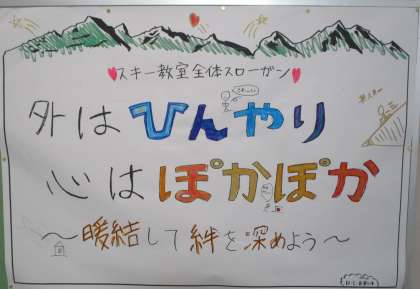 ♥スキー教室全体スローガン♥
外はひんやり
心はぽかぽか
~暖結して絆を深めよう~